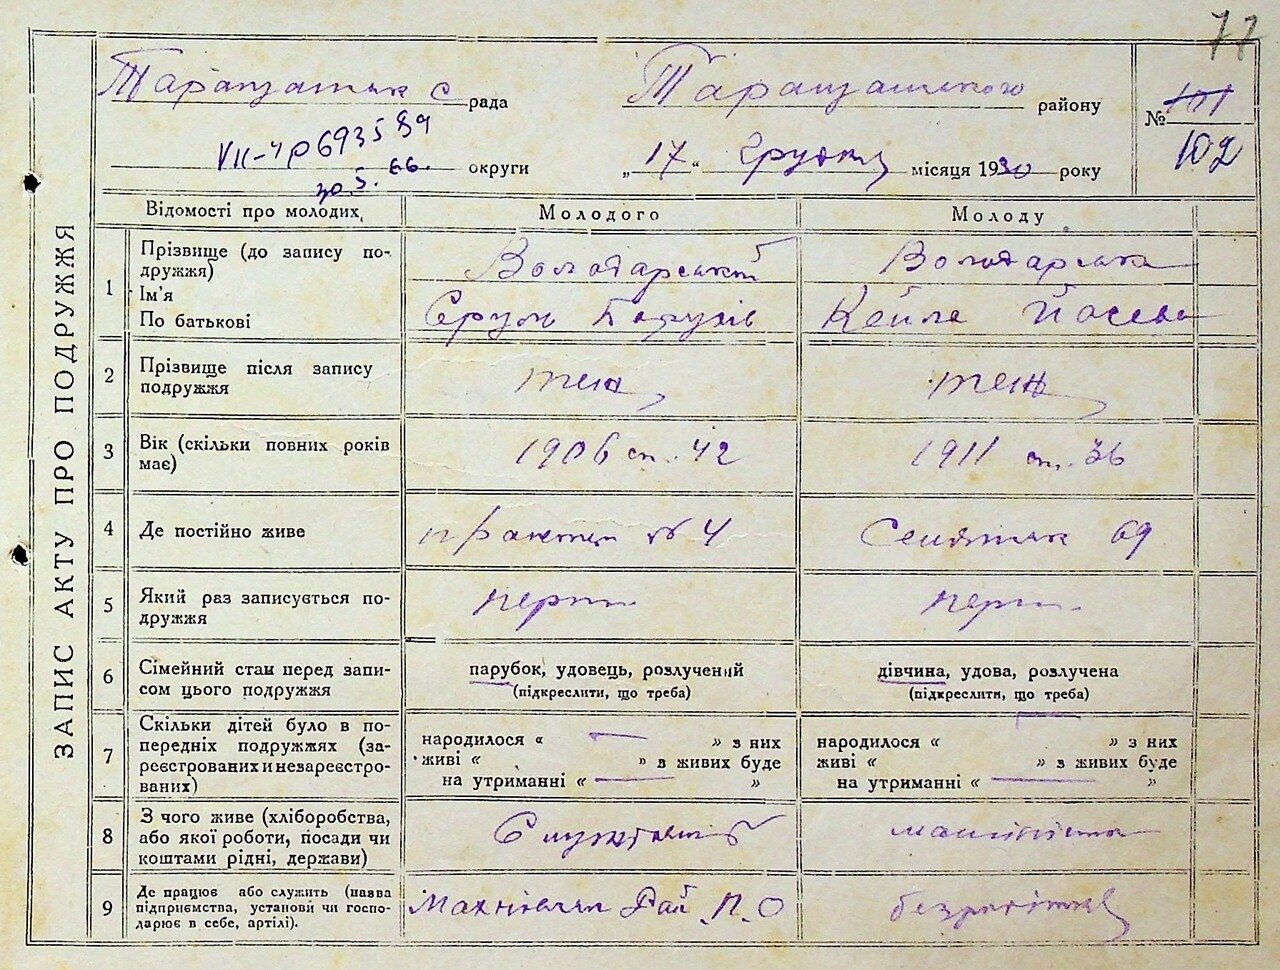 77
Таращанськ с рада Таращанського району № 101
VII-ЧР 693589
30.5.66. округи „17“ Грудня місяця 1930 року 102
ЗАПИС АКТУ ПРО ПОДРУЖЖЯ
Відомості про молодих, Молодого Молоду
1 Прізвище (до запису подружжя) Володарський Володарська
Ім'я
По батькові Сруль Кейла Йосева
2 Прізвище після запису
подружжя
3 Вік (скільки повних років
має) 1906 1911
4 Де постійно живе № 4 69
5 Який раз записується по-
дружжя перш. перш.
6 Сімейний стан перед запи-
сом цього подружжя
парубок, удовець, розлучений дівчина, удова, розлучена
(підкреслити, що треба) (підкреслити, що треба)
7 Скільки дітей було в по-
передніх подружжях (за-
реєстрованих и незареєстро-
ваних)
народилося « — » з них народилося « — » з них
живі « » в живих буде живі « » з живих буде
на утриманні « — » на утриманні « — »
8 З чого живе (хліборобства,
або якої роботи, посади чи
коштами рідні, держави)
9 Де працює або служить (назва
підприємства, установи чи госпо-
дарює в себе, артілі).
Рай П. О безробітна